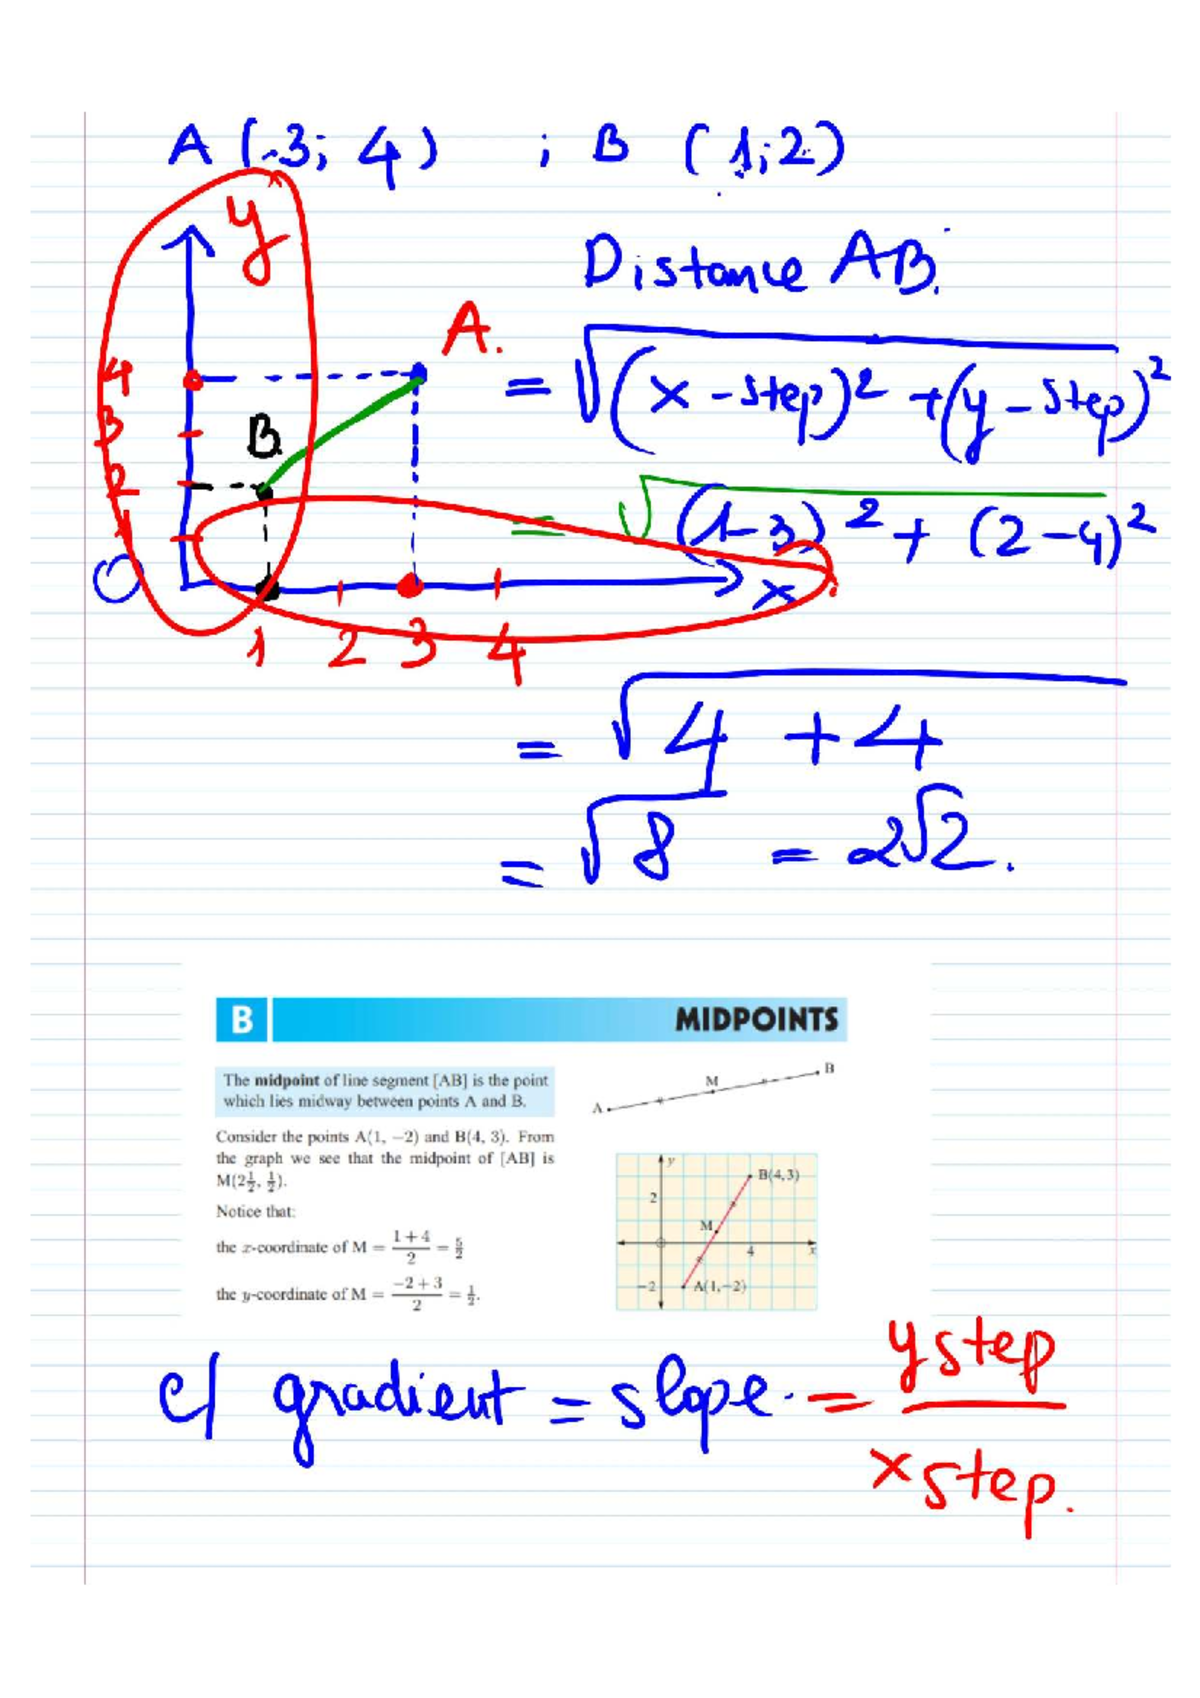 A (.3; 4) ; B (1;2)
y
Distance AB.
A.
= √(x-step)² + (y-step)²
4
3
B.
2
= √(1-3)² + (2-4)²
1
O
x
1 2 3 4
= √4 + 4
= √8 = 2√2.
B MIDPOINTS
The midpoint of line segment [AB] is the point
which lies midway between points A and B.
A M B
Consider the points A(1, −2) and B(4, 3). From
the graph we see that the midpoint of [AB] is
M(2½, ½).
Notice that:
the x-coordinate of M = (1 + 4)/2 = 5/2
the y-coordinate of M = (−2 + 3)/2 = ½.
y
B(4,3)
2
M
4
x
−2
A(1,−2)
c/ gradient = slope. = y step / x step.